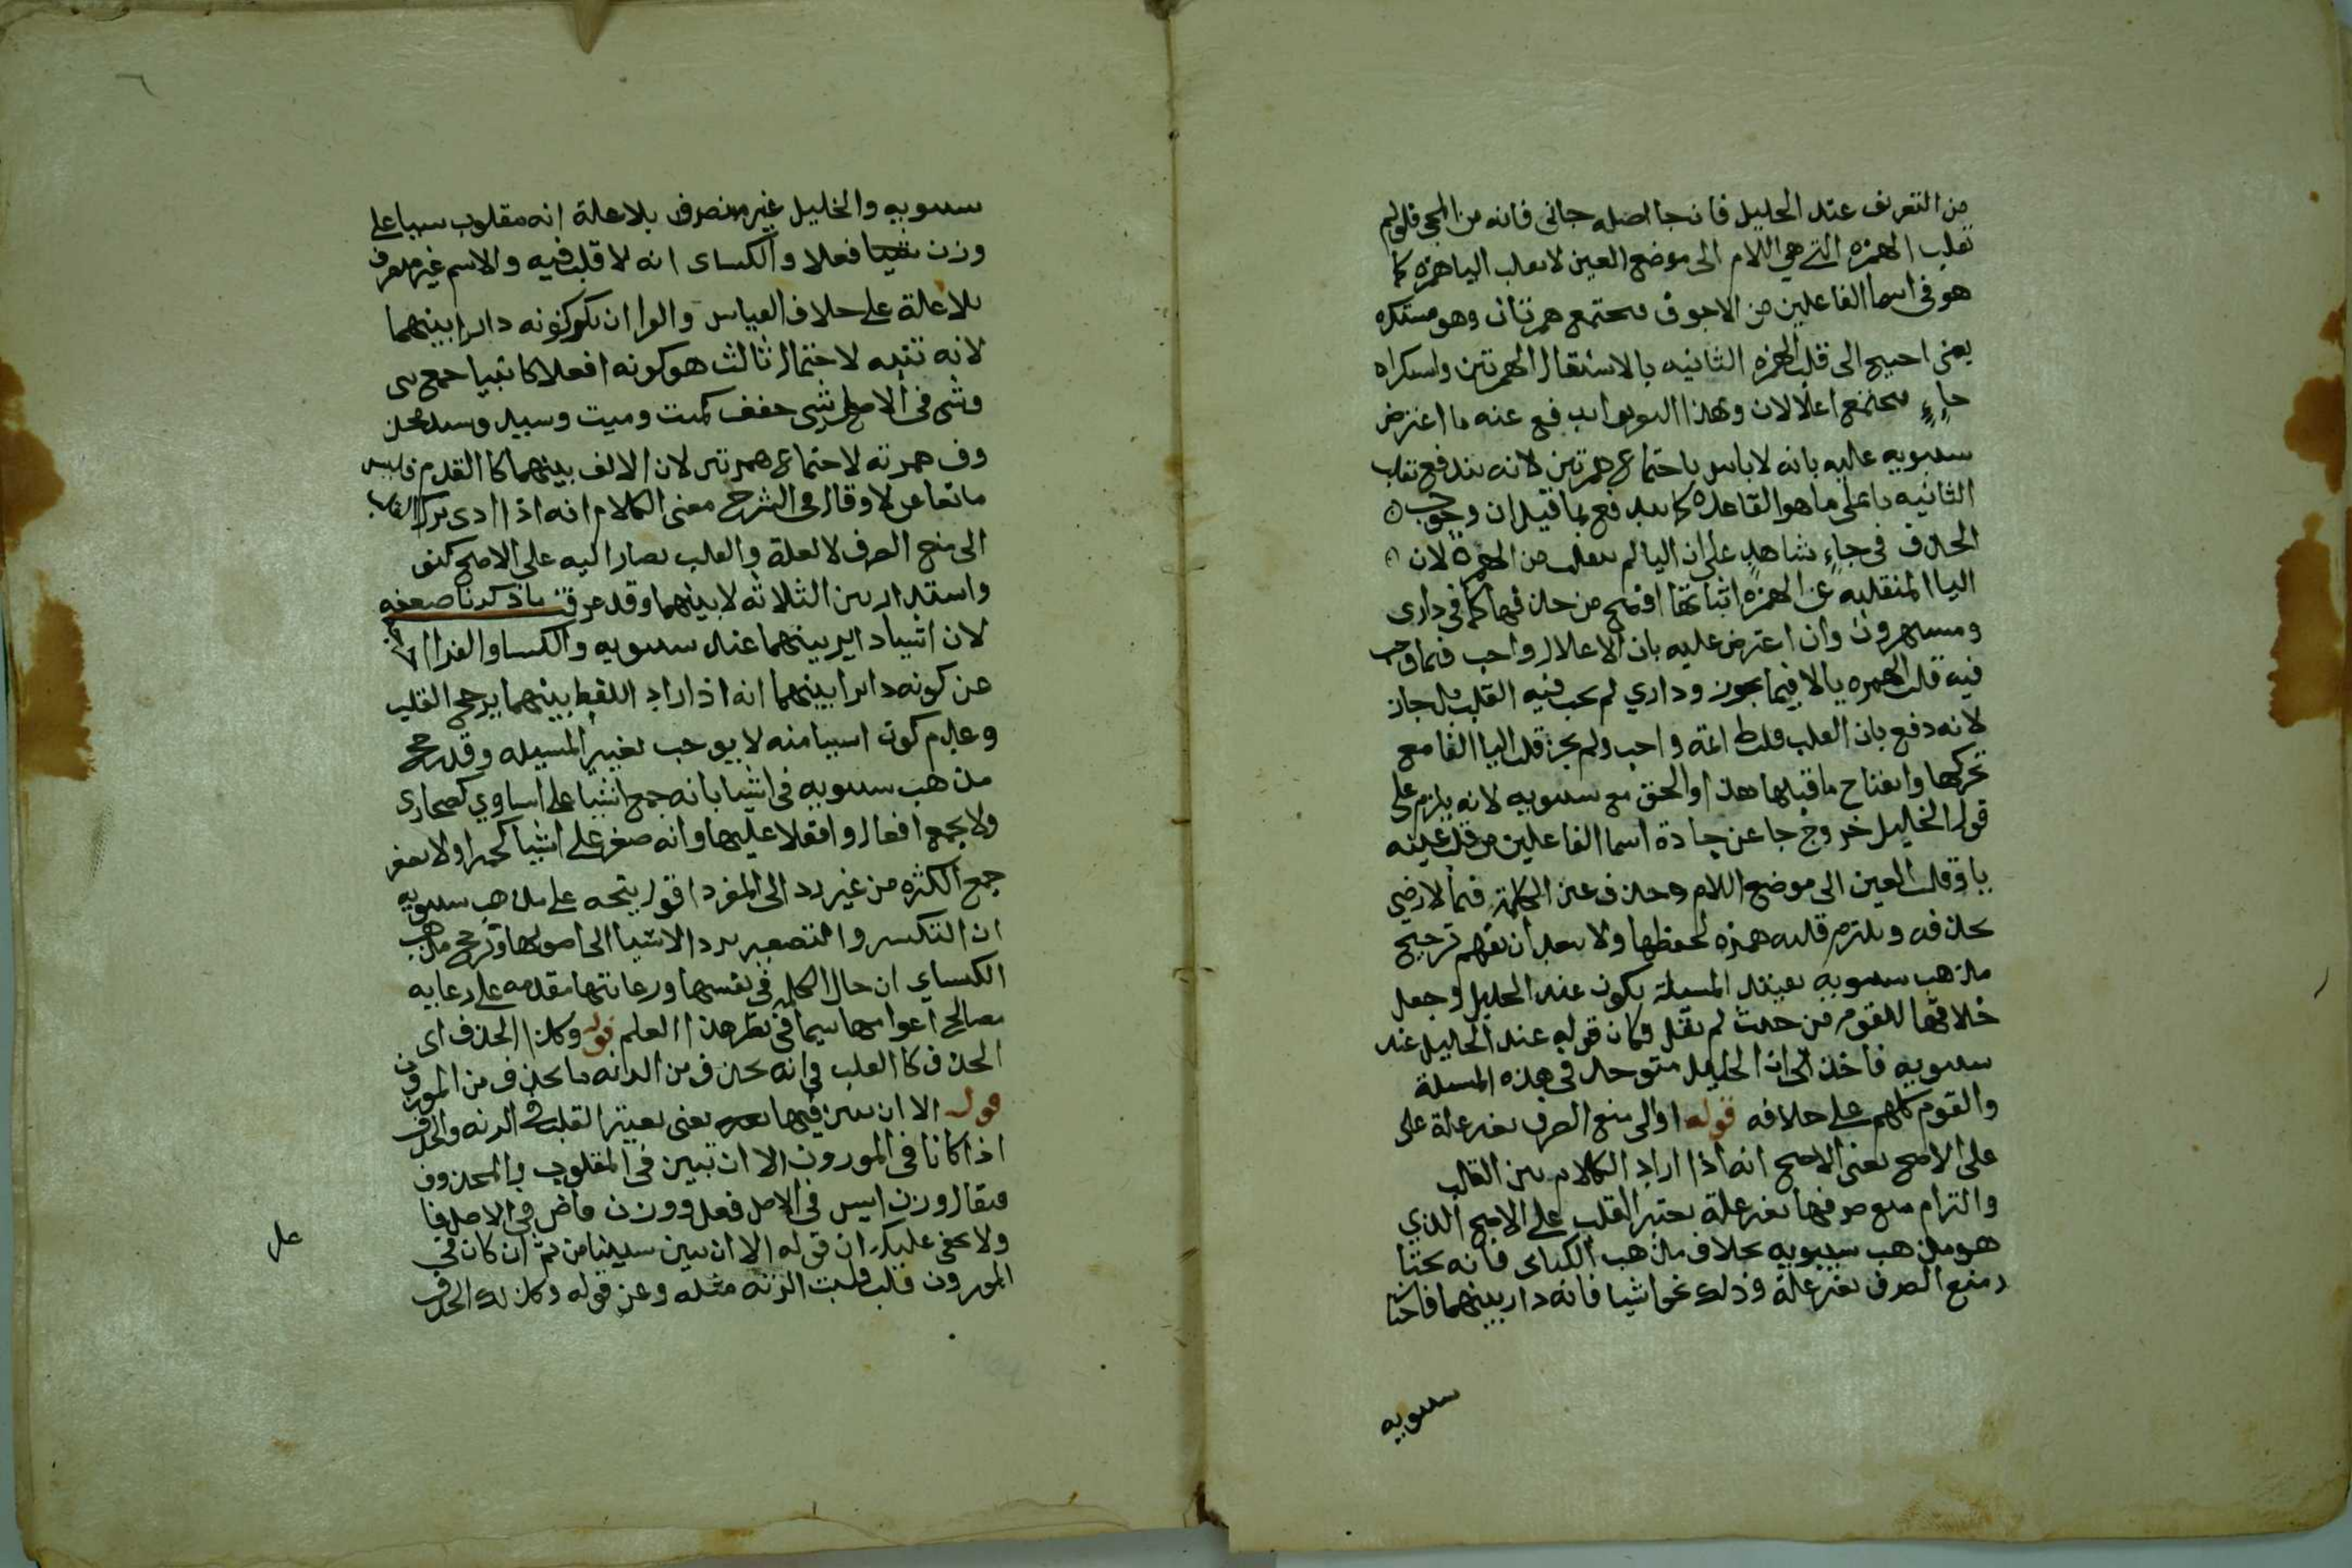 من التعريف عند الخليل فان جا اصله جائى فانه من المجى فلو لم
تقلب الهمزه التي هي اللام الى موضع العين لا تقلب اليا همزه كما
هو فى اسما الفاعلين من الاجوف فتجتمع همزتان وهو مستكره
يعنى احتيج الى قلب الهمزه الثانيه يا لاستثقال الهمزتين واستكراه
جاءٍ فيجتمع اعلالان وبهذا اندفع عنه ما اعترض
سيبويه عليه بانه لا باس باجتماع همزتين لانه يندفع بقلب
الثانيه يا على ما هو القاعده كما يندفع بما قيل ان وجوب
الحذف فى جاءٍ شاهد على ان اليا لم تنقلب من الهمزة لان
اليا المنقلبه عن الهمزه اثباتها افصح من حذفها كما فى دارى
ومستهزون وان اعترض عليه بان الاعلال واجب فيما وجب
فيه قلب الهمزه يا لا فيما يجوز وداري لم يجب فيه القلب بل جاز
لانه دفع بان القلب فى ائمة واجب ولم يجز قلب اليا الفا مع
تحركها وانفتاح ما قبلها هذا والحق مع سيبويه لانه يلزم على
قول الخليل خروج جا عن جادة اسما الفاعلين من قلب عينه
يا وقلب العين الى موضع اللام وحذف عين الكلمة فيما لا رضي
بحذفه ويلتزم قلبه همزه لحفظها ولا يبعد ان يفهم ترجيح
مذهب سيبويه بتقييد المسئلة بكون عند الخليل وجعل
خلافها للقوم من حيث لم يقل وكان قوله عند الخليل عند
سيبويه فاخذ الى ان الخليل متوحد فى هذه المسئلة
والقوم كلهم على خلافه قوله او الى منع الصرف بغير علة على
على الاصح يعنى الاصح انه اذا اراد الكلام بين القلب
والتزام منع صرفها بغير علة يعتبر القلب على الاصح الذي
هو مذهب سيبويه بخلاف مذهب الكساى فانه يختار
منع الصرف بغير علة وذلك نحو اشيا فانه دار بينهما فاختار
سيبويه
سيبويه والخليل غير منصرف بلا علة انه مقلوب شيا على
وزن شيئا فعلا والكساى انه لا قلب فيه والاسم غير منصرف
بلا علة على خلاف القياس والفرا انكر كونه دايرا بينهما
لانه تنبه لاحتمال ثالث هو كونه افعلا كانبيا جمع شى
وشى فى الاصل شيى خفف كميت وميت وسيد وسيد فحذف
همزته لاجتماع همزتين لان الالف بينهما كالعدم فليس
ما تعا عن لا وقال فى الشرح معنى الكلام انه اذا ادى ترك القلب
الى منع الصرف لا لعلة والقلب يصار اليه على الاصح كيف
واستدار بين الثلاثه لا بينهما وقد عرفت بما ذكرنا ضعفه
لان اشيا داير بينهما عند سيبويه والكسا والفرا
من كونه دايرا بينهما انه اذا دار اللفظ بينهما يرجح القلب
وعدم كون اشيا منه لا يوجب تغيير المسئله وقد رجح
مذهب سيبويه فى اشيا بانه جمع اشيا على اشاوي كصحارى
ولا يجمع افعال وافعلا عليها وانه صغر على اشيا كحميرا ولا يصغر
جمع الكثره من غير رد الى المفرد اقول يتجه على مذهب سيبويه
ان التكسير والتصغير يرد الاشيا الى اصولها وترجح مذهب
الكساي ان حال الكلمه فى نفسها ورعايتها مقدمه على رعايه
مصالح اعوامها سيما فى نظر هذا العلم قوله وكذا الحذف اى
الحذف كالقلب فى انه يحذف من الزنه ما يحذف من الموزون
قوله الا ان يبين فيهما يعنى يعتبر القلب فى الزنه والحذف
اذا كانا فى الموزون الا ان تبين فى المقلوب والمحذوف
فيقال وزن ايس فى الاصل فعل ووزن قاض فى الاصل فا
ولا يخفى عليك ان قوله الا ان يبين سيبنا من ثم ان كان فى
الموزون قلب قلبت الزنه مثله وعن قوله وكذلك الحذف
على